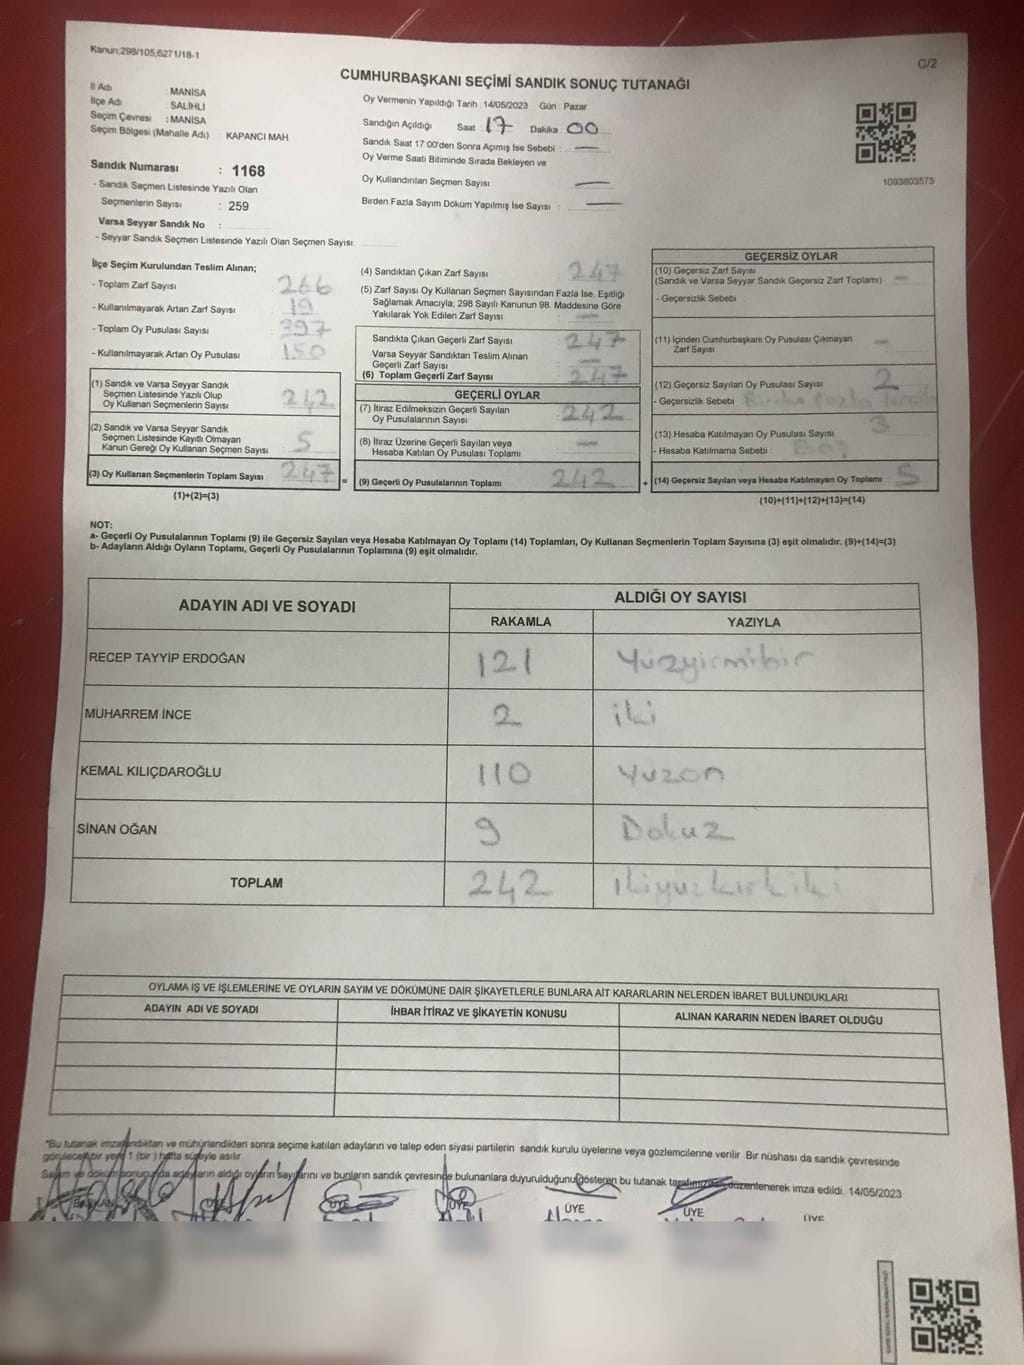 Kanun:298/105,6271/18-1
C/2
CUMHURBAŞKANI SEÇİMİ SANDIK SONUÇ TUTANAĞI
İl Adı : MANİSA
İlçe Adı : SALİHLİ
Seçim Çevresi : MANİSA
Seçim Bölgesi (Mahalle Adı) : KAPANCI MAH
Oy Vermenin Yapıldığı Tarih : 14/05/2023 Gün : Pazar
Sandığın Açıldığı Saat : 17 Dakika : 00
Sandık Saat 17 00'den Sonra Açımış İse Sebebi : —
Oy Verme Saati Bitiminde Sırada Bekleyen ve
Oy Kullandırılan Seçmen Sayısı —
Birden Fazla Sayım Döküm Yapılmış İse Sayısı : —
1093803575
Sandık Numarası : 1168
- Sandık Seçmen Listesinde Yazılı Olan
Seçmenlerin Sayısı : 259
Varsa Seyyar Sandık No :
- Seyyar Sandık Seçmen Listesinde Yazılı Olan Seçmen Sayısı
İlçe Seçim Kurulundan Teslim Alınan;
- Toplam Zarf Sayısı : 266
- Kullanılmayarak Artan Zarf Sayısı : 19
- Toplam Oy Pusulası Sayısı : 397
- Kullanılmayarak Artan Oy Pusulası : 150
(1) Sandık ve Varsa Seyyar Sandık
Seçmen Listesinde Yazılı Olup
Oy Kullanan Seçmenlerin Sayısı : 242
(2) Sandık ve Varsa Seyyar Sandık
Seçmen Listesinde Kayıtlı Olmayan
Kanun Gereği Oy Kullanan Seçmen Sayısı : 5
(3) Oy Kullanan Seçmenlerin Toplam Sayısı : 247 =
(1)+(2)=(3)
(4) Sandıktan Çıkan Zarf Sayısı : 247
(5) Zarf Sayısı Oy Kullanan Seçmen Sayısından Fazla İse, Eşitliği
Sağlamak Amacıyla; 298 Sayılı Kanunun 98. Maddesine Göre
Yakılarak Yok Edilen Zarf Sayısı : —
Sandıkta Çıkan Geçerli Zarf Sayısı : 247
Varsa Seyyar Sandıktan Teslim Alınan
Geçerli Zarf Sayısı : —
(6) Toplam Geçerli Zarf Sayısı : 247
GEÇERLİ OYLAR
(7) İtiraz Edilmeksizin Geçerli Sayılan
Oy Pusulalarının Sayısı : 242
(8) İtiraz Üzerine Geçerli Sayılan veya
Hesaba Katılan Oy Pusulası Toplamı : —
(9) Geçerli Oy Pusulalarının Toplamı : 242 +
GEÇERSİZ OYLAR
(10) Geçersiz Zarf Sayısı
(Sandık ve Varsa Seyyar Sandık Geçersiz Zarf Toplamı) : —
- Geçersizlik Sebebi :
(11) İçinden Cumhurbaşkanı Oy Pusulası Çıkmayan
Zarf Sayısı : —
(12) Geçersiz Sayılan Oy Pusulası Sayısı : 2
- Geçersizlik Sebebi : Birden fazla tercih
(13) Hesaba Katılmayan Oy Pusulası Sayısı : 3
- Hesaba Katılmama Sebebi : Boş
(14) Geçersiz Sayılan veya Hesaba Katılmayan Oy Toplamı : 5
(10)+(11)+(12)+(13)=(14)
NOT:
a- Geçerli Oy Pusulalarının Toplamı (9) ile Geçersiz Sayılan veya Hesaba Katılmayan Oy Toplamı (14) Toplamları, Oy Kullanan Seçmenlerin Toplam Sayısına (3) eşit olmalıdır. (9)+(14)=(3)
b- Adayların Aldığı Oyların Toplamı, Geçerli Oy Pusulalarının Toplamına (9) eşit olmalıdır.
ADAYIN ADI VE SOYADI
ALDIĞI OY SAYISI
RAKAMLA YAZIYLA
RECEP TAYYİP ERDOĞAN 121 Yüzyirmibir
MUHARREM İNCE 2 iki
KEMAL KILIÇDAROĞLU 110 Yüzon
SİNAN OĞAN 9 Dokuz
TOPLAM 242 İkiyüzkırkiki
OYLAMA İŞ VE İŞLEMLERİNE VE OYLARIN SAYIM VE DÖKÜMÜNE DAİR ŞİKAYETLERLE BUNLARA AİT KARARLARIN NELERDEN İBARET BULUNDUKLARI
ADAYIN ADI VE SOYADI İHBAR İTİRAZ VE ŞİKAYETİN KONUSU ALINAN KARARIN NEDEN İBARET OLDUĞU
"Bu tutanak imzalandıktan ve mühürlendikten sonra seçime katılan adayların ve talep eden siyasi partilerin sandık kurulu üyelerine veya gözlemcilerine verilir. Bir nüshası da sandık çevresinde
görülecek bir yere 1 (bir ) hafta süreyle asılır
Sayım ve döküm sonucunda adayların aldığı oyların sayılarını ve bunların sandık çevresinde bulunanlara duyurulduğunu gösteren bu tutanak tarafımızdan düzenlenerek imza edildi. 14/05/2023
BAŞKAN ÜYE ÜYE ÜYE ÜYE ÜYE